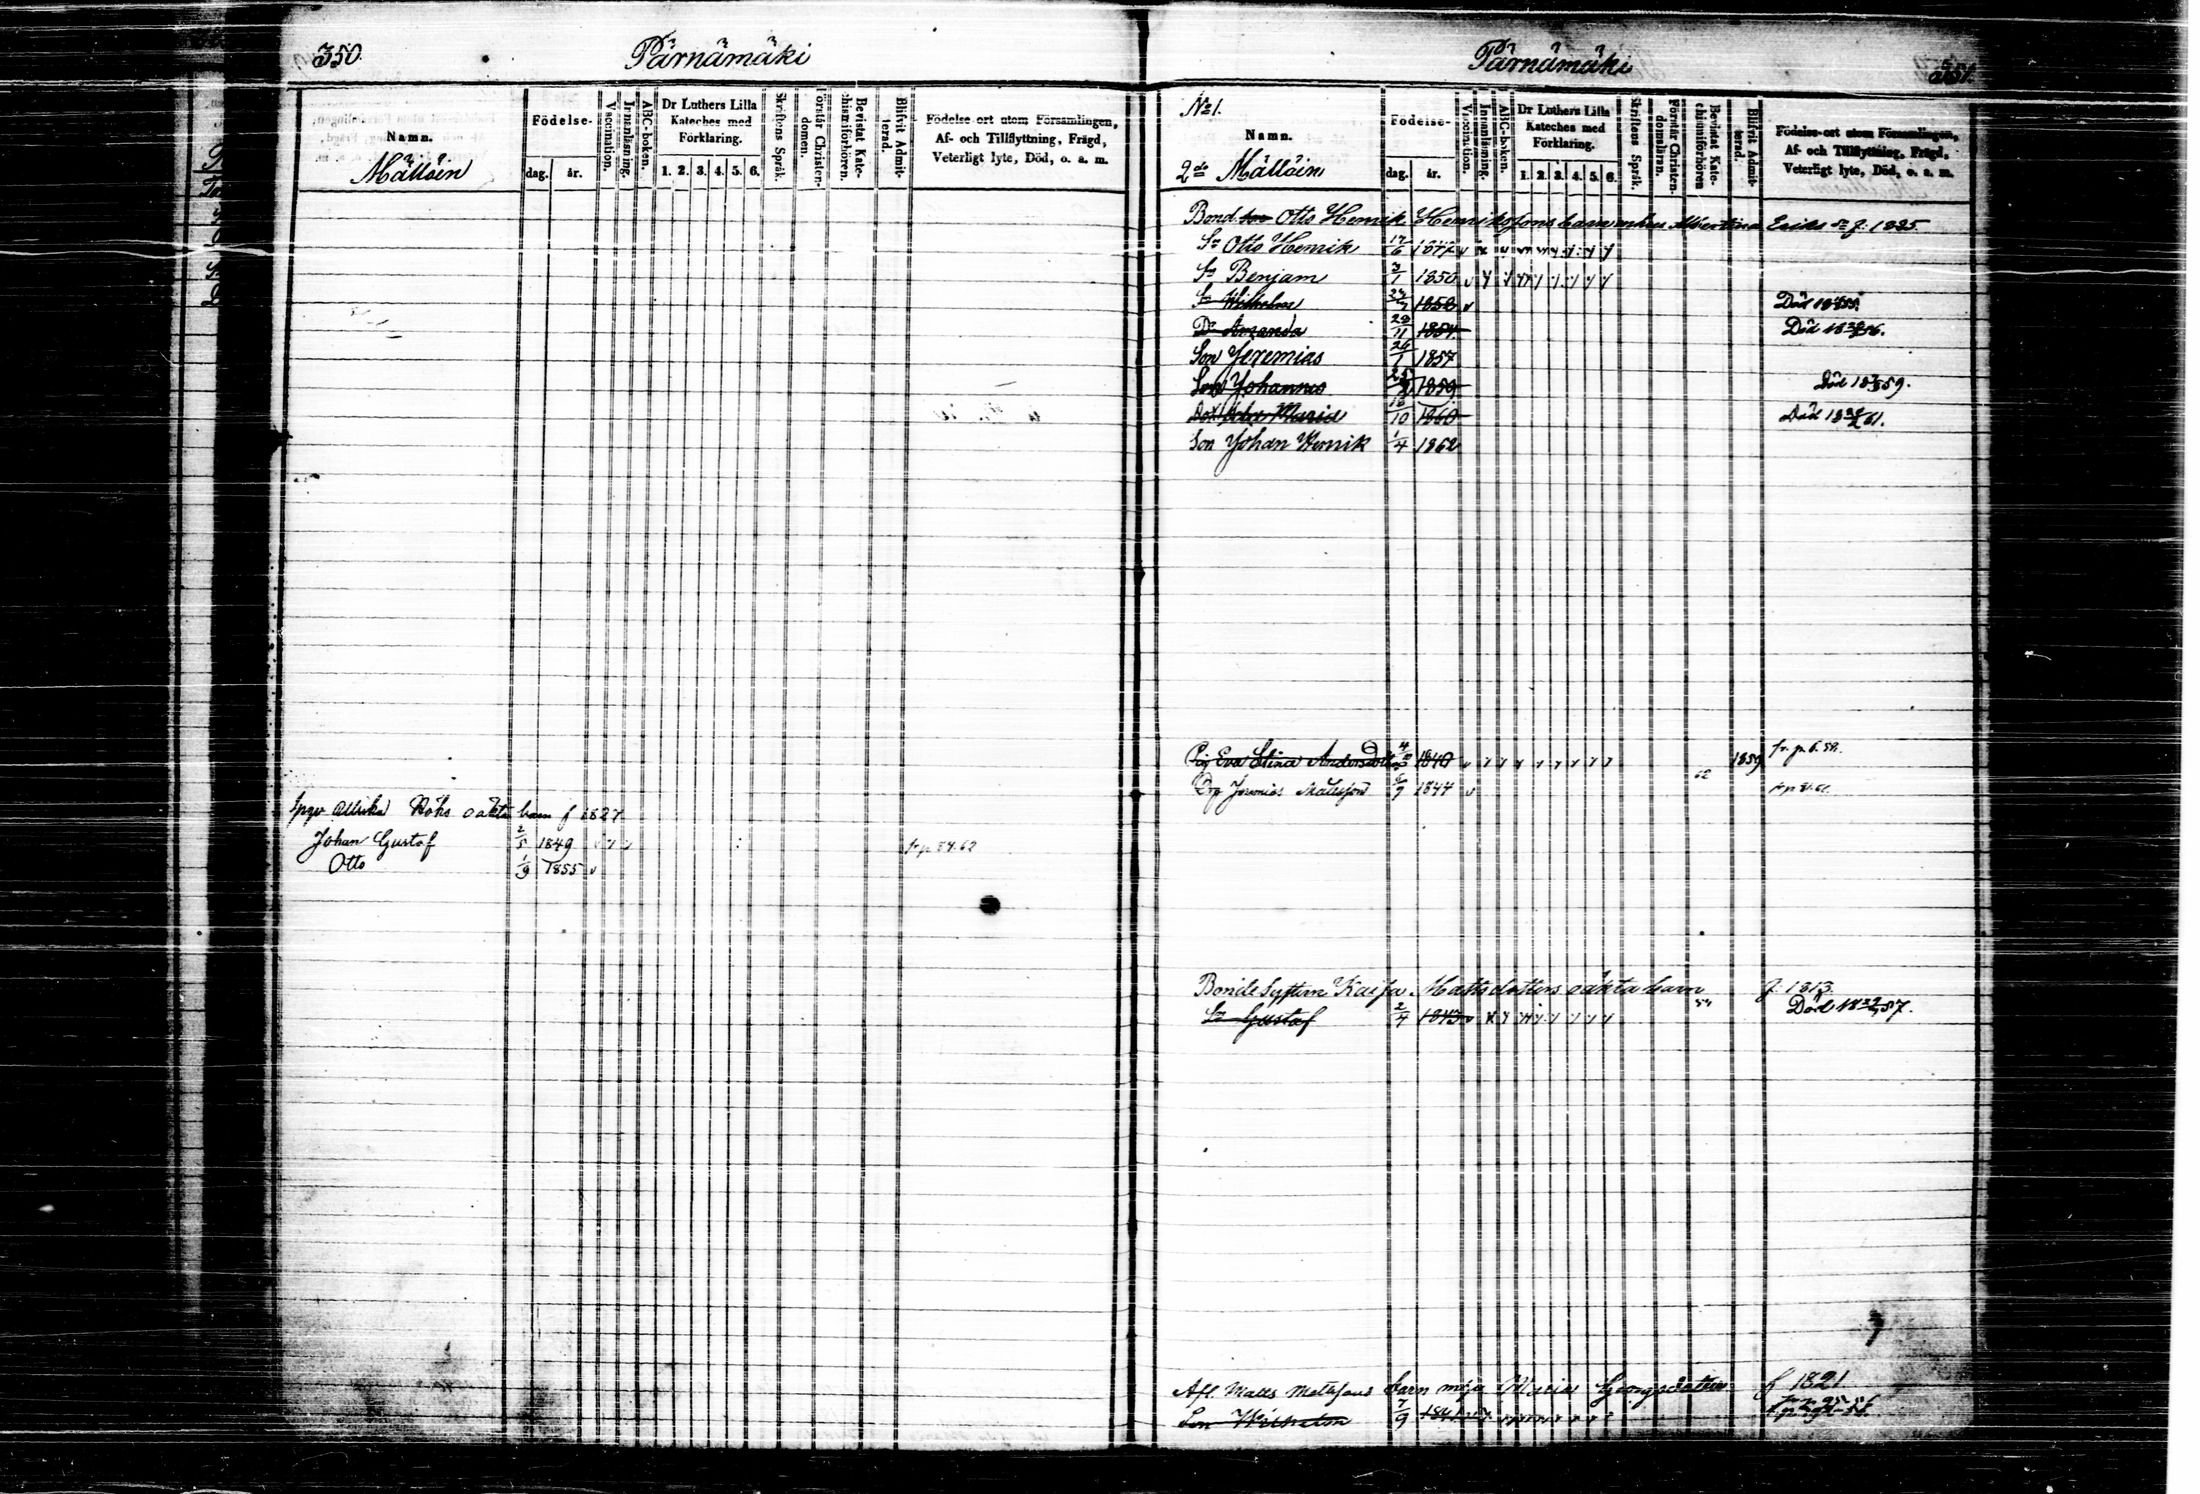 350.
Pärnämäki
Namn.
Mälläin
Födelse-
dag. år.
Vaccination.
Innanläsning.
ABC-boken.
Dr Luthers Lilla
Kateches med
Förklaring.
1. 2. 3. 4. 5. 6.
Skriftens Språk.
Förstår Christen-
domen.
Bevistat Kate-
chismiförhören.
Blifvit Admit-
terad.
Födelse-ort utom Församlingen,
Af- och Tillflyttning, Frägd,
Veterligt lyte, Död, o. s. m.
Ulrika Höks oäkta barn f 1827
Johan Gustaf 2/5 1849
Otto 1/9 1855
Pärnämäki
351.
No 1.
Namn.
2do Mälläin
Födelse-
dag. år.
Vaccination.
Innanläsning.
ABC-boken.
Dr Luthers Lilla
Kateches med
Förklaring.
1. 2. 3. 4. 5. 6.
Skriftens Språk.
Förstår Christen-
domsläran.
Bevistat Kate-
chismiförhören
Blifvit Admit-
terad.
Födelse-ort utom Församlingen,
Af- och Tillflyttning, Frägd,
Veterligt lyte, Död, o. s. m.
Bond Otto Henrik Henrikssons barn Albertina Eriks Dr f. 1825.
Sn Otto Henrik 17/6 1847
Sn Benjam 3/1 1850
Sn Wilhelm Död
Dr Amanda 28/11 1854 Död
Son Jeremias 26/1 1857
Son Johannes 1859 Död 59.
Maria 10 1860 Död 61.
Son Johan Henrik 1/4 1862
Pig Eva Stina Andersdotter 1840 1859
Drg Jeremias Mattsson 9 1844 62
Bonde Systern Kaisa Mattsdotters oäkta barn f. 1813.
Sn Gustaf 2/4 1843 Död 57.
Afl. Matts Matssons barn Maria Georgsdotter f 1821
Son Wilhelm 7/9